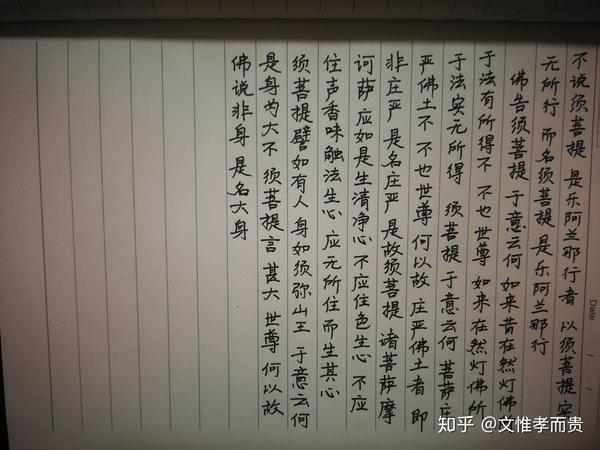 不说须菩提 是乐阿兰那行者 以须菩提实
无所行 而名须菩提 是乐阿兰那行
佛告须菩提 于意云何 如来昔在然灯佛
于法有所得不 不也世尊 如来在然灯佛所
于法实无所得 须菩提 于意云何 菩萨庄
严佛土不 不也世尊 何以故 庄严佛土者 即
非庄严 是名庄严 是故须菩提 诸菩萨摩
诃萨 应如是生清净心 不应住色生心 不应
住声香味触法生心 应无所住而生其心
须菩提 譬如有人 身如须弥山王 于意云何
是身为大不 须菩提言 甚大 世尊 何以故
佛说非身 是名大身
Date
知乎 @文惟孝而贵